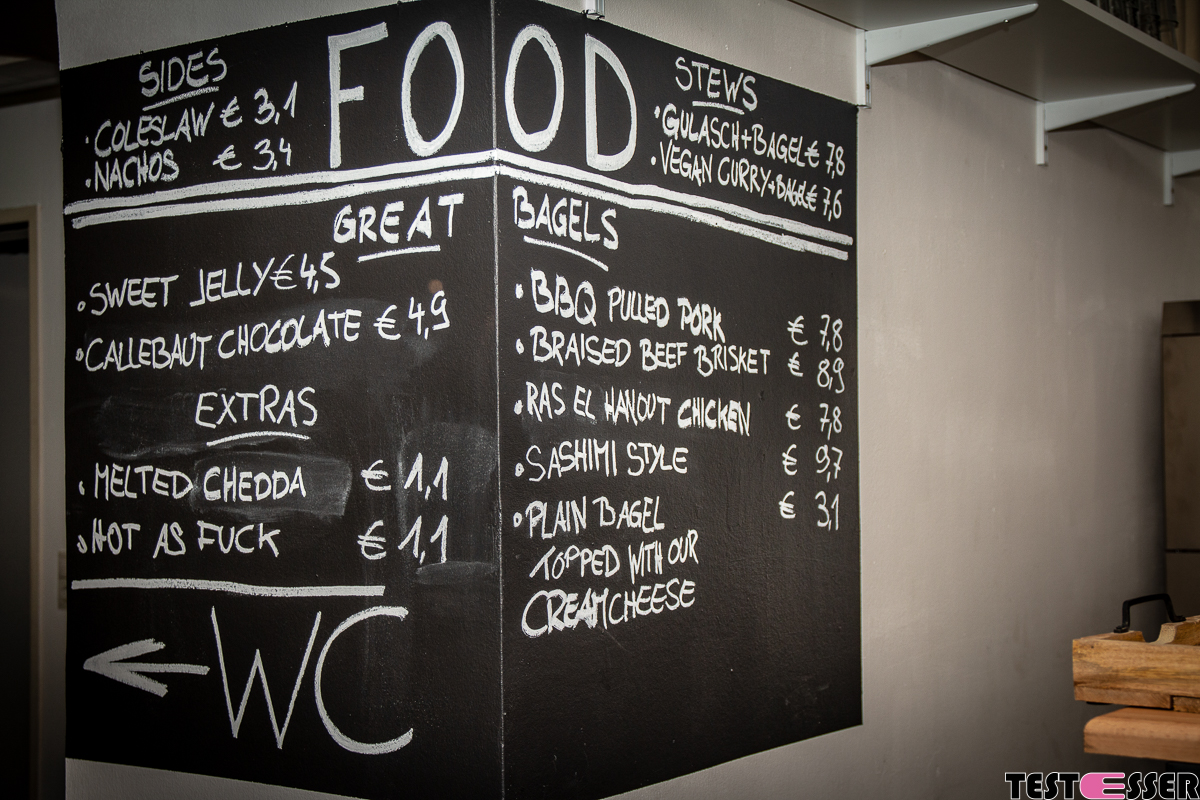 FOOD
SIDES
• COLESLAW € 3,1
• NACHOS € 3,4
STEWS
• GULASCH+BAGEL € 7,8
• VEGAN CURRY+BAGEL € 7,6
GREAT BAGELS
• SWEET JELLY € 4,5
• CALLEBAUT CHOCOLATE € 4,9
EXTRAS
• MELTED CHEDDA € 1,1
• HOT AS FUCK € 1,1
← WC
• BBQ PULLED PORK € 7,8
• BRAISED BEEF BRISKET € 8,9
• RAS EL HANOUT CHICKEN € 7,8
• SASHIMI STYLE € 9,7
• PLAIN BAGEL € 3,1
TOPPED WITH OUR
CREAMCHEESE
TESTESSER